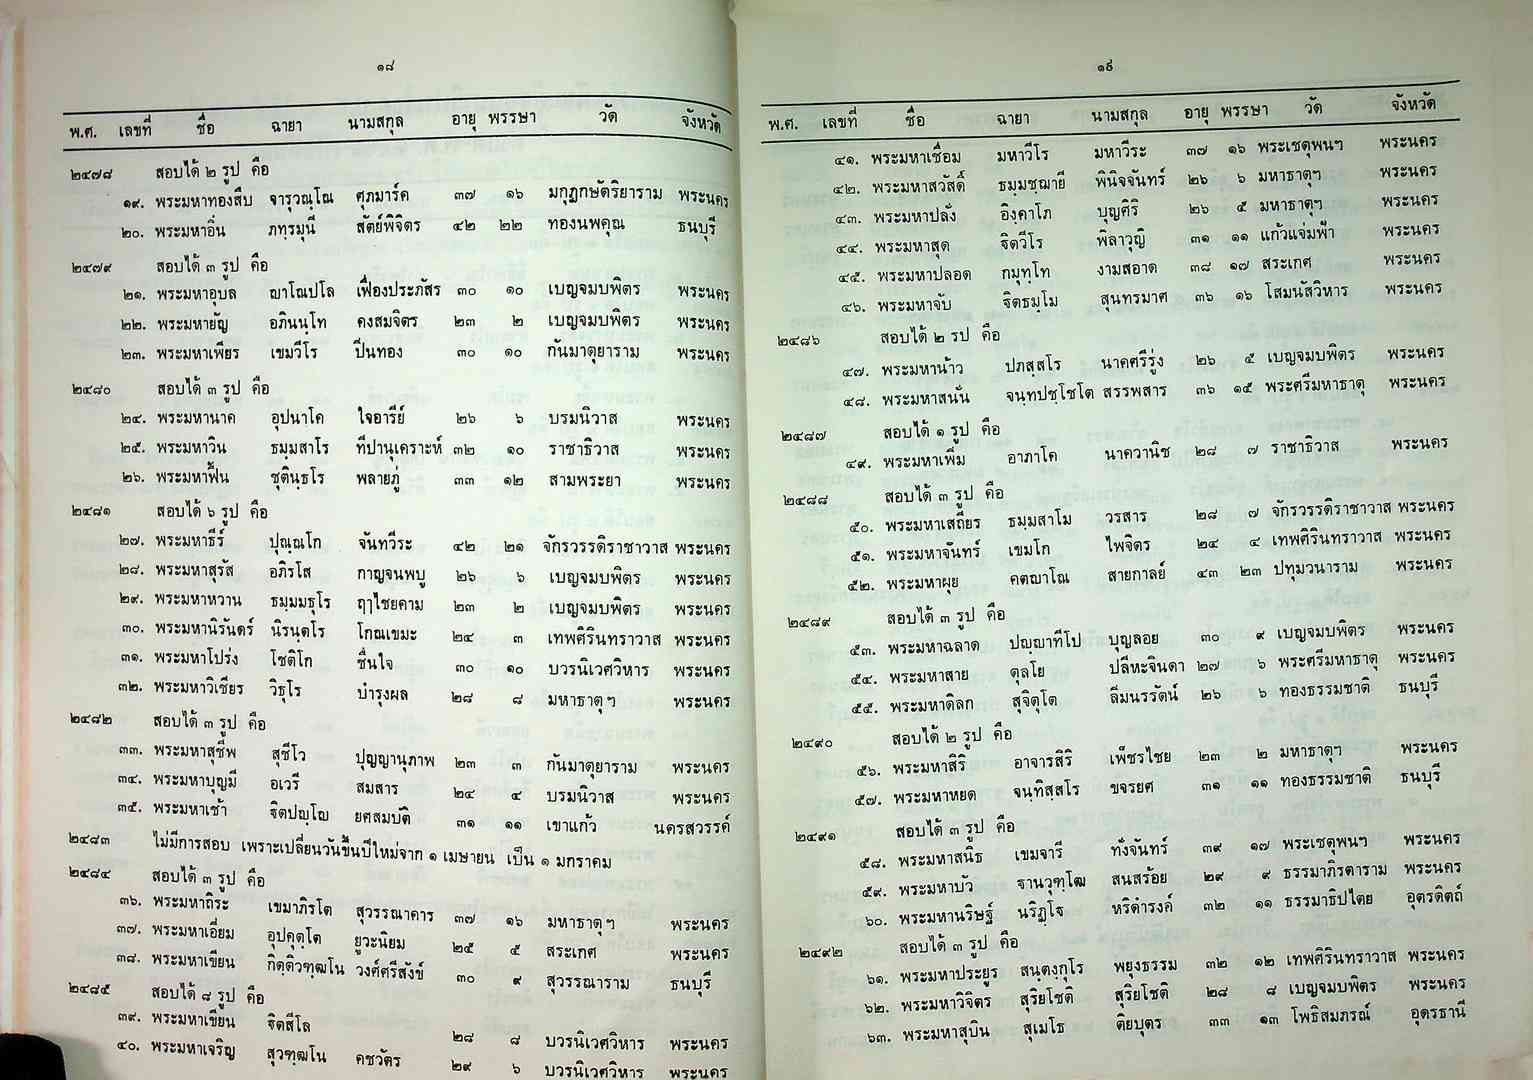 ๑๘
พ.ศ. เลขที่ ชื่อ ฉายา นามสกุล อายุ พรรษา วัด จังหวัด
๒๔๗๘ สอบได้ ๒ รูป คือ
๑๙. พระมหาทองสืบ จารุวณฺโณ ศุภมาร์ค ๓๗ ๑๖ มกุฏกษัตริยาราม พระนคร
๒๐. พระมหาอิ่น ภทฺรมุนี สัตย์พิจิตร ๔๒ ๒๒ ทองนพคุณ ธนบุรี
๒๔๗๙ สอบได้ ๓ รูป คือ
๒๑. พระมหาอุบล ญาโณปโล เฟื่องประภัสร ๓๐ ๑๐ เบญจมบพิตร พระนคร
๒๒. พระมหายัญ อภินนฺโท คงสมจิตร ๒๓ ๒ เบญจมบพิตร พระนคร
๒๓. พระมหาเพียร เขมวีโร ปิ่นทอง ๓๐ ๑๐ กันมาตุยาราม พระนคร
๒๔๘๐ สอบได้ ๓ รูป คือ
๒๔. พระมหานาค อุปนาโค ใจอารีย์ ๒๖ ๖ บรมนิวาส พระนคร
๒๕. พระมหาวิน ธมฺมสาโร ทีปานุเคราะห์ ๓๒ ๑๐ ราชาธิวาส พระนคร
๒๖. พระมหาฟื้น ชุตินฺธโร พลายภู่ ๓๓ ๑๒ สามพระยา พระนคร
๒๔๘๑ สอบได้ ๖ รูป คือ
๒๗. พระมหาธีร์ ปุณฺณโก จันทวีระ ๔๒ ๒๑ จักรวรรดิราชาวาส พระนคร
๒๘. พระมหาสุรัส อภิรโส กาญจนพบู ๒๖ ๖ เบญจมบพิตร พระนคร
๒๙. พระมหาหวาน ธมฺมมธุโร ฤๅไชยคาม ๒๓ ๒ เบญจมบพิตร พระนคร
๓๐. พระมหานิรันดร์ นิรนฺตโร โกณเขมะ ๒๔ ๓ เทพศิรินทราวาส พระนคร
๓๑. พระมหาโปร่ง โชติโก ชื่นใจ ๓๐ ๑๐ บวรนิเวศวิหาร พระนคร
๓๒. พระมหาวิเชียร วิธุโร บำรุงผล ๒๘ ๘ มหาธาตุฯ พระนคร
๒๔๘๒ สอบได้ ๓ รูป คือ
๓๓. พระมหาสุชีพ สุชีโว ปุญญานุภาพ ๒๓ ๓ กันมาตุยาราม พระนคร
๓๔. พระมหาบุญมี อเวรี สมสาร ๒๔ ๔ บรมนิวาส พระนคร
๓๕. พระมหาเช้า ฐิตปญฺโญ ยศสมบัติ ๓๑ ๑๑ เขาแก้ว นครสวรรค์
๒๔๘๓ ไม่มีการสอบ เพราะเปลี่ยนวันขึ้นปีใหม่จาก ๑ เมษายน เป็น ๑ มกราคม
๒๔๘๔ สอบได้ ๓ รูป คือ
๓๖. พระมหาถิระ เขมาภิรโต สุวรรณาคาร ๓๗ ๑๖ มหาธาตุฯ พระนคร
๓๗. พระมหาเอี่ยม อุปคุตฺโต ยูวะนิยม ๒๕ ๕ สระเกศ พระนคร
๓๘. พระมหาเขียน กิตฺติวฑฺฒโน วงศ์ศรีสังข์ ๓๐ ๙ สุวรรณาราม ธนบุรี
๒๔๘๕ สอบได้ ๘ รูป คือ
๓๙. พระมหาเขียน ฐิตสีโล ๒๘ ๘ บวรนิเวศวิหาร พระนคร
๔๐. พระมหาเจริญ สุวฑฺฒโน คชวัตร ๒๙ ๖ บวรนิเวศวิหาร พระนคร
๑๙
พ.ศ. เลขที่ ชื่อ ฉายา นามสกุล อายุ พรรษา วัด จังหวัด
๔๑. พระมหาเชื่อม มหาวีโร มหาวีระ ๓๗ ๑๖ พระเชตุพนฯ พระนคร
๔๒. พระมหาสวัสดิ์ ธมฺมชฺฌายี พินิจจันทร์ ๒๖ ๖ มหาธาตุฯ พระนคร
๔๓. พระมหาปลั่ง อิงฺคาโภ บุญศิริ ๒๖ ๕ มหาธาตุฯ พระนคร
๔๔. พระมหาสุด ฐิตวีโร พิลาวุฒิ ๓๑ ๑๑ แก้วแจ่มฟ้า พระนคร
๔๕. พระมหาปลอด กมุทฺโท งามสอาด ๓๘ ๑๗ สระเกศ พระนคร
๔๖. พระมหาจับ ฐิตธมฺโม สุนทรมาศ ๓๖ ๑๖ โสมนัสวิหาร พระนคร
๒๔๘๖ สอบได้ ๒ รูป คือ
๔๗. พระมหาน้าว ปภสฺสโร นาคศรีรุ่ง ๒๖ ๕ เบญจมบพิตร พระนคร
๔๘. พระมหาสนั่น จนฺทปชฺโชโต สรรพสาร ๓๖ ๑๕ พระศรีมหาธาตุ พระนคร
๒๔๘๗ สอบได้ ๑ รูป คือ
๔๙. พระมหาเพิ่ม อาภาโค นาควานิช ๒๘ ๗ ราชาธิวาส พระนคร
๒๔๘๘ สอบได้ ๓ รูป คือ
๕๐. พระมหาเสถียร ธมฺมสาโม วรสาร ๒๘ ๗ จักรวรรดิราชาวาส พระนคร
๕๑. พระมหาจันทร์ เขมโก ไพจิตร ๒๔ ๔ เทพศิรินทราวาส พระนคร
๕๒. พระมหาผุย คตญาโณ สายกาลย์ ๔๓ ๒๓ ปทุมวนาราม พระนคร
๒๔๘๙ สอบได้ ๓ รูป คือ
๕๓. พระมหาฉลาด ปญฺญาทีโป บุญลอย ๓๐ ๙ เบญจมบพิตร พระนคร
๕๔. พระมหาสาย ตุลโย ปลีหะจินดา ๒๗ ๖ พระศรีมหาธาตุ พระนคร
๕๕. พระมหาดิลก สุจิตฺโต ลิ้มนรรัตน์ ๒๖ ๖ ทองธรรมชาติ ธนบุรี
๒๔๙๐ สอบได้ ๒ รูป คือ
๕๖. พระมหาสิริ อาจารสิริ เพ็ชรไชย ๒๓ ๒ มหาธาตุฯ พระนคร
๕๗. พระมหาหยด จนฺทิสฺสโร ขจรยศ ๓๑ ๑๑ ทองธรรมชาติ ธนบุรี
๒๔๙๑ สอบได้ ๓ รูป คือ
๕๘. พระมหาสนิธ เขมจารี ทั่งจันทร์ ๓๙ ๑๗ พระเชตุพนฯ พระนคร
๕๙. พระมหาบัว ฐานวุฑฺโฒ สนสร้อย ๒๙ ๙ ธรรมาภิรตาราม พระนคร
๖๐. พระมหานริษฐ์ นริฏฺโจ หริดำรงค์ ๓๒ ๑๑ ธรรมาธิปไตย อุตรดิตถ์
๒๔๙๒ สอบได้ ๓ รูป คือ
๖๑. พระมหาประยูร สนฺตงฺกุโร พยุงธรรม ๓๒ ๑๒ เทพศิรินทราวาส พระนคร
๖๒. พระมหาวิจิตร สุริยโชติ สุริยโชติ ๒๘ ๘ เบญจมบพิตร พระนคร
๖๓. พระมหาสุบิน สุเมโธ ติยบุตร ๓๓ ๑๓ โพธิสมภรณ์ อุดรธานี